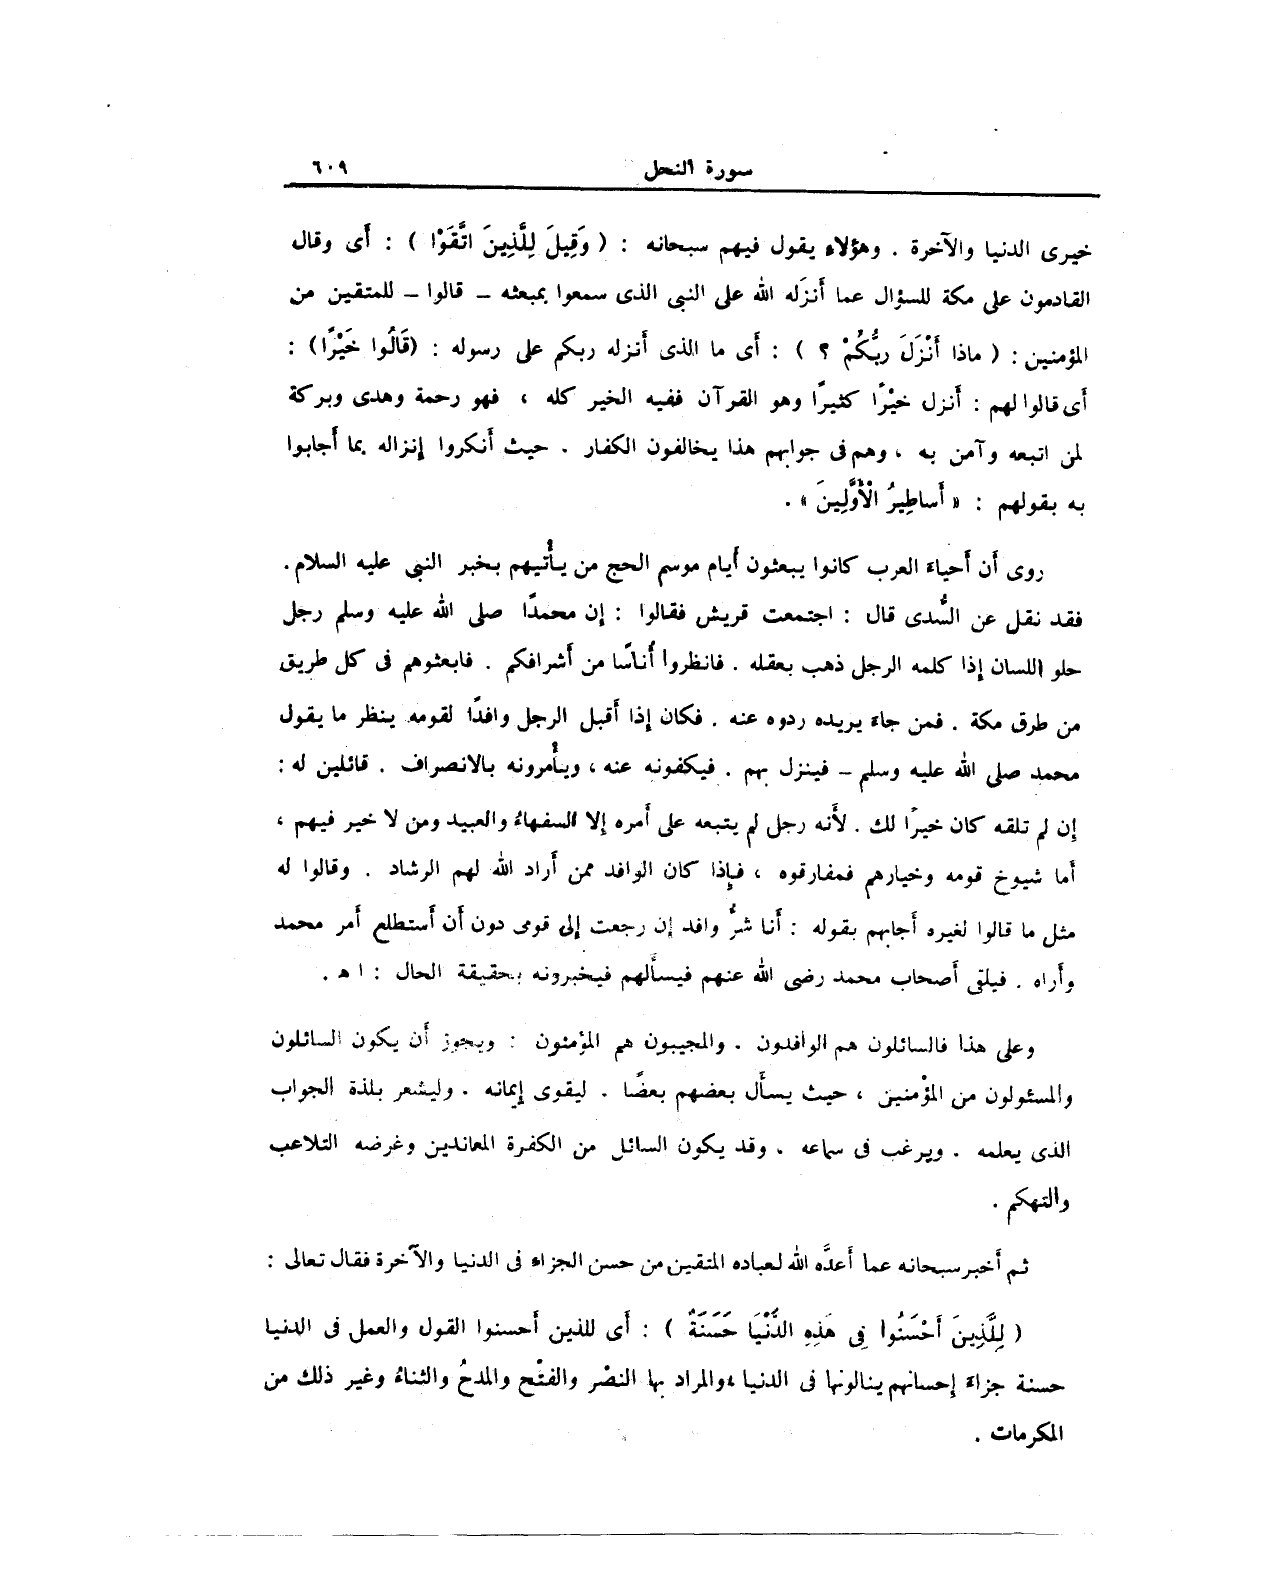 سورة النحل ٦٠٩
خيرى الدنيا والآخرة . وهؤلاء يقول فيهم سبحانه : ( وَقِيلَ لِلَّذِينَ اتَّقَوْا ) : أَى وقال
القادمون على مكة للسؤال عما أَنزَله الله على النبى الذى سمعوا بمبعثه – قالوا – للمتقين من
المؤمنين : ( ماذا أَنْزَلَ ربُّكُمْ ؟ ) : أَى ما الذى أَنزله ربكم على رسوله : (قَالُوا خَيْرًا) :
أَى قالوا لهم : أَنزل خيْرًا كثيرًا وهو القرآن ففيه الخير كله ، فهو رحمة وهدى وبركة
لمن اتبعه وآمن به ، وهم فى جوابهم هذا يخالفون الكفار . حيث أَنكروا إِنزاله بما أَجابوا
به بقولهم : « أَساطِيرُ الْأَوَّلِينَ » .
روى أَن أَحياءَ العرب كانوا يبعثون أَيام موسم الحج من يأْتيهم بخبر النبى عليه السلام .
فقد نقل عن السُّدى قال : اجتمعت قريش فقالوا : إِن محمدًا صلى الله عليه وسلم رجل
حلو اللسان إِذا كلمه الرجل ذهب بعقله . فانظروا أُناسًا من أَشرافكم . فابعثوهم فى كل طريق
من طرق مكة . فمن جاءَ يريده ردوه عنه . فكان إِذا أَقبل الرجل وافدًا لقومه ينظر ما يقول
محمد صلى الله عليه وسلم – فينزل بهم . فيكفونه عنه ، ويأْمرونه بالانصراف . قائلين له :
إِن لم تلقه كان خيرًا لك . لأَنه رجل لم يتبعه على أَمره إِلا السفهاءُ والعبيد ومن لا خير فيهم ،
أَما شيوخ قومه وخيارهم فمفارقوه ، فإِذا كان الوافد ممن أَراد الله لهم الرشاد . وقالوا له
مثل ما قالوا لغيره أَجابهم بقوله : أَنا شرُّ وافد إِن رجعت إِلى قومى دون أَن أَستطلع أَمر محمد
وأَراه . فيلقى أَصحاب محمد رضى الله عنهم فيسأَلهم فيخبرونه بحقيقة الحال : ا ه .
وعلى هذا فالسائلون هم الوافدون . والمجيبون هم المؤمنون : ويجوز أَن يكون السائلون
والمسئولون من المؤْمنين ، حيث يسأَل بعضهم بعضًا . ليقوى إِيمانه . وليشعر بلذة الجواب
الذى يعلمه . ويرغب فى سماعه . وقد يكون السائل من الكفرة المعاندين وغرضه التلاعب
والتهكم .
ثم أَخبر سبحانه عما أَعدَّه الله لعباده المتقين من حسن الجزاءِ فى الدنيا والآخرة فقال تعالى :
( لِلَّذِينَ أَحْسَنُوا فِى هَذِهِ الدُّنْيَا حَسَنَةٌ ) : أَى للذين أَحسنوا القول والعمل فى الدنيا
حسنة جزاءَ إِحسانهم ينالونها فى الدنيا ، والمراد بها النصْر والفتْح والمدحُ والثناءُ وغير ذلك من
المكرمات .